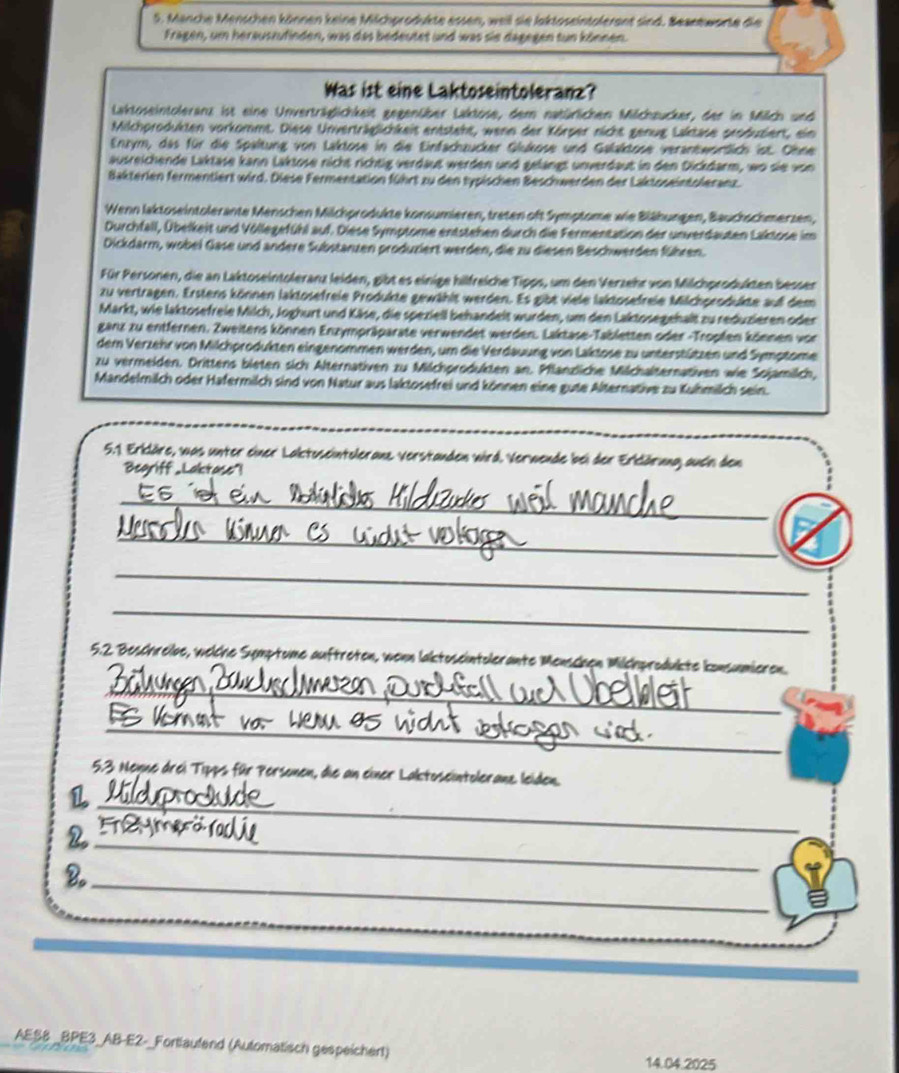 5. Manche Menschen können keine Milchprodukte essen, weil sie laktoseintolerant sind. Beantworte die
Fragen, um herauszufinden, was das bedeutet und was sie dagegen tun können.
Was ist eine Laktoseintoleranz?
Laktoseintoleranz ist eine Unverträglichkeit gegenüber Laktose, dem natürlichen Milchzucker, der in Milch und
Milchprodukten vorkommt. Diese Unverträglichkeit entsteht, wenn der Körper nicht genug Laktase produziert, ein
Enzym, das für die Spaltung von Laktose in die Einfachzucker Glukose und Galaktose verantwortlich ist. Ohne
ausreichende Laktase kann Laktose nicht richtig verdaut werden und gelangt unverdaut in den Dickdarm, wo sie von
Bakterien fermentiert wird. Diese Fermentation führt zu den typischen Beschwerden der Laktoseintoleranz.
Wenn laktoseintolerante Menschen Milchprodukte konsumieren, treten oft Symptome wie Blähungen, Bauchschmerzen,
Durchfall, Übelkeit und Völlegefühl auf. Diese Symptome entstehen durch die Fermentation der unverdauten Laktose im
Dickdarm, wobei Gase und andere Substanzen produziert werden, die zu diesen Beschwerden führen.
Für Personen, die an Laktoseintoleranz leiden, gibt es einige hilfreiche Tipps, um den Verzehr von Milchprodukten besser
zu vertragen. Erstens können laktosefreie Produkte gewählt werden. Es gibt viele laktosefreie Milchprodukte auf dem
Markt, wie laktosefreie Milch, Joghurt und Käse, die speziell behandelt wurden, um den Laktosegehalt zu reduzieren oder
ganz zu entfernen. Zweitens können Enzympräparate verwendet werden. Laktase-Tabletten oder -Tropfen können vor
dem Verzehr von Milchprodukten eingenommen werden, um die Verdauung von Laktose zu unterstützen und Symptome
zu vermeiden. Drittens bieten sich Alternativen zu Milchprodukten an. Pflanzliche Milchalternativen wie Sojamilch,
Mandelmilch oder Hafermilch sind von Natur aus laktosefrei und können eine gute Alternative zu Kuhmilch sein.
5.1 Erkläre, was unter einer Lactoseintoleranz verstanden wird. Verwende bei der Erklärung auch den
Begriff „Lactase“!
ES ist ein weil manche
können es nicht
5.2 Beschreibe, welche Symptome auftreten, wenn lactoseintolerante Menschen Milchprodukte konsumieren.
Bähungen, Bauchschmerzen, Durchfall und Übelkeit
ES kommt vor wenn es nicht vertragen wird.
5.3 Nenne drei Tipps für Personen, die an einer Lactoseintoleranz leiden.
1.
2.
3.
AES8_BPE3_AB-E2-_Fortlaufend (Automatisch gespeichert)
14.04.2025